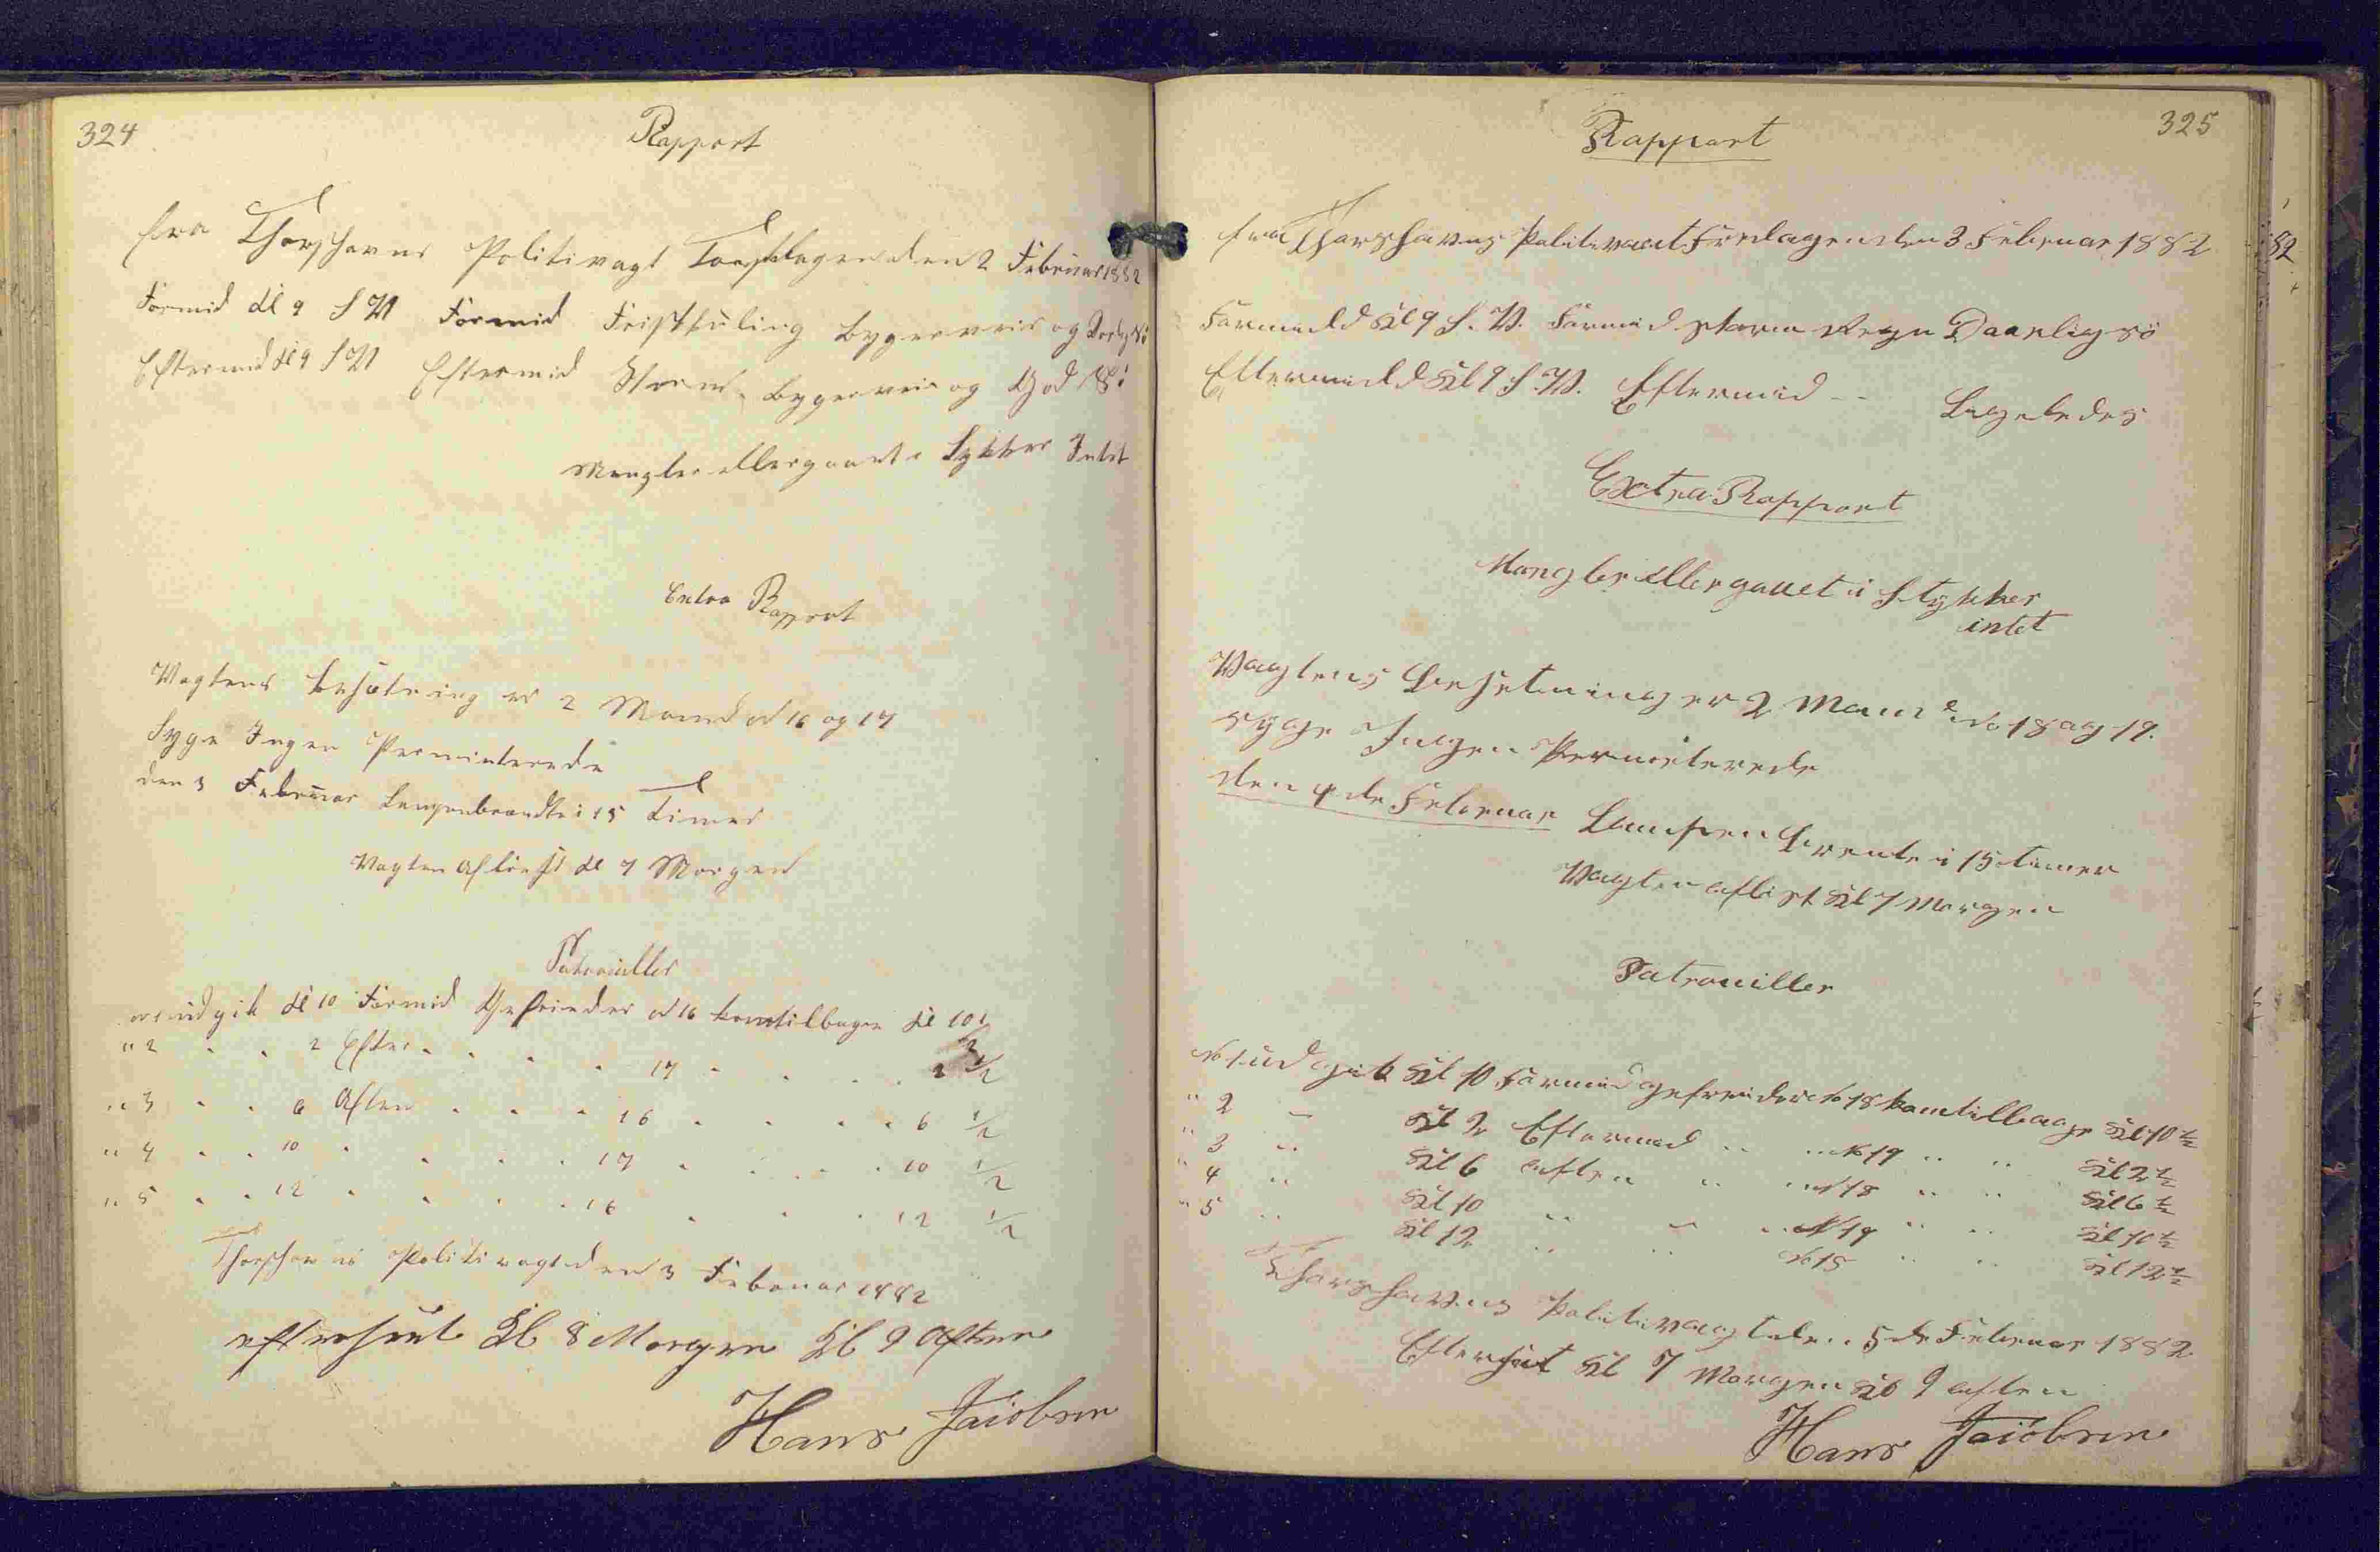 324
Rapport
fra Thorshavns Politivagt Torsdagen den 2 Februar 1882
Formid Kl 9 S W Formid Friskkuling Bygerveir og Sö
Eftermid Kl 9 S W Eftermid Storm Bygerveir og God Sö
Mangler eller gaaet i Sykker Intet
Extra Rapport
Vagtens besætning er 2 Mand No 16 og 17
Syge Ingen Permiterede
den 3 Februar Lampenbrændte i 15 Timer
Vagten Aflöist Kl 7 Morgen
Patrouiller
No 1 udgik Kl 10 Formid Gefreider No 16 kom tilbage Kl 10 1/2
" 2 " " 2 Efter " " " 17 " " " 2 1/2
" 3 " " 6 Aften " " " 16 " " " 6 1/2
" 4 " " 10 " " " " 17 " " " 10 1/2
" 5 " " 12 " " " " 16 " " " 12 1/2
Thorshavns Politivagt den 3 Februar 1882
efterseet Kl 8 Morgen Kl 9 Aften
Hans Jacobsen
325
Rapport
fra Thorshavns Politivact Fredagen den 3 Februar 1882
Formidd Kl 9 S. W. Formid storm Regn Daarlig sö
Eftermidd Kl 9 S. W. Eftermid " Ligeledes
Extra Rapport
Mangler eller gaaet i Stykker
intet
Vagtens Besetning er 2 Mand No 18 og 19.
syge Ingen Permiterede
den 4de Februar Lampen Brente i 15 timer
Vagten aflöst Kl 7 Morgen
Patrouiller
No 1 udgik Kl 10 Formid gefreider No 18 kom tilbage Kl 10 1/2
" 2 " Kl 2 Eftermid " " No 19 " " Kl 2 1/2
" 3 " Kl 6 aften " " No 18 " " Kl 6 1/2
" 4 " Kl 10 " " " No 19 " " Kl 10 1/2
" 5 " Kl 12 " " No 18 " " Kl 12 1/2
Thorshavns Politivagt den 5de Februar 1882
Efterseet Kl 7 Morgen Kl 9 aften
Hans Jacobsen
82